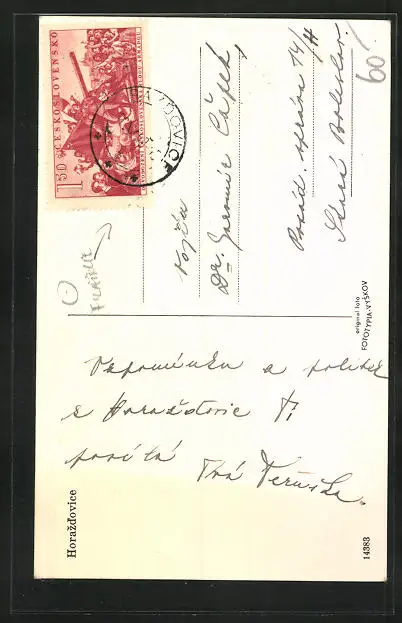 ČESKOSLOVENSKO
1.50
Vojín
Dr. Jaromír Čapek,
Posád. správa 14/H
Stará Boleslav.
60
FILATELIE
original foto
FOTOTYPIA-VYŠKOV
Vzpomínku a polibek
z Horažďovic Ti
posílá
Tvá Věruška.
Horažďovice
14383